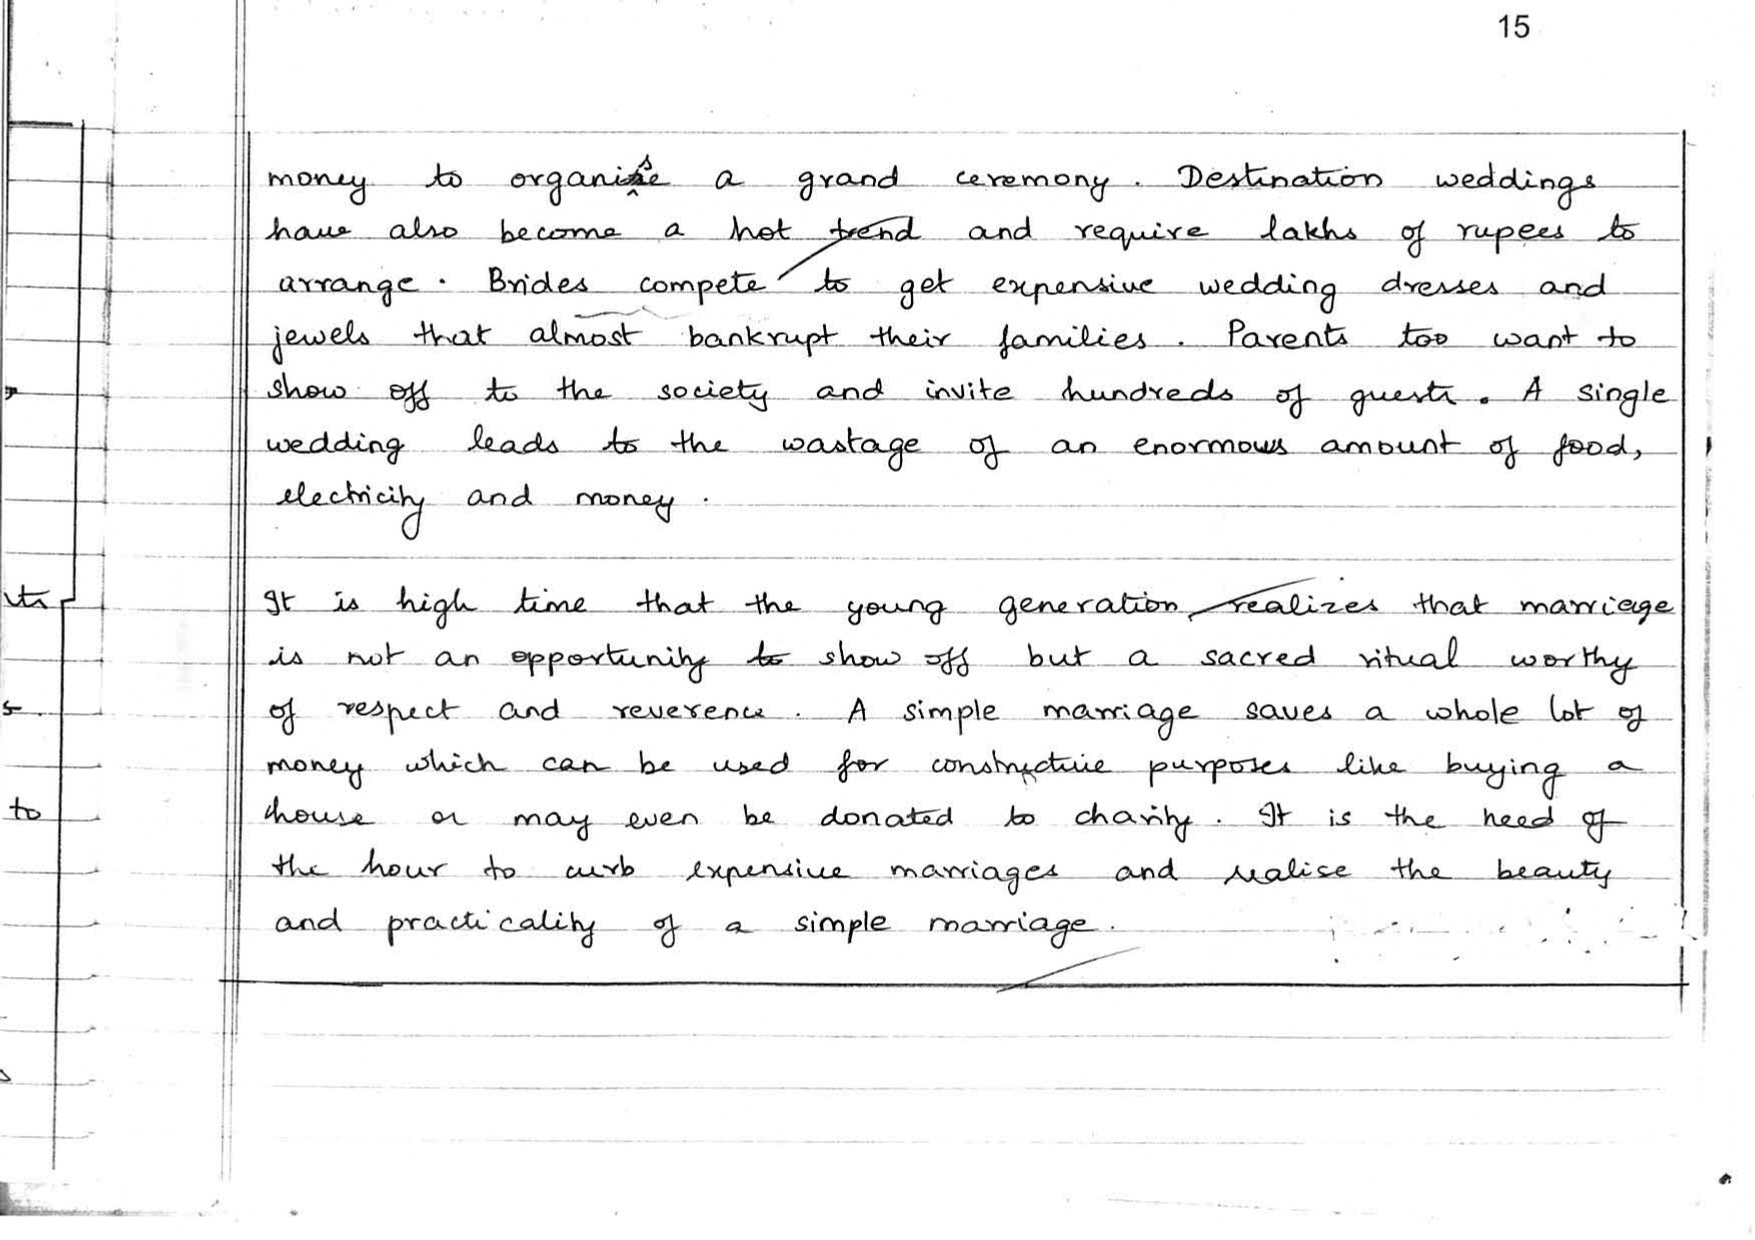 15
money to organise a grand ceremony. Destination weddings
have also become a hot trend and require lakhs of rupees to
arrange. Brides compete to get expensive wedding dresses and
jewels that almost bankrupt their families. Parents too want to
show off to the society and invite hundreds of guests. A single
wedding leads to the wastage of an enormous amount of food,
electricity and money.
It is high time that the young generation realizes that marriage
is not an opportunity to show off but a sacred ritual worthy
of respect and reverence. A simple marriage saves a whole lot of
money which can be used for constructive purposes like buying a
house or may even be donated to charity. It is the need of
the hour to curb expensive marriages and realise the beauty
and practicality of a simple marriage.
to